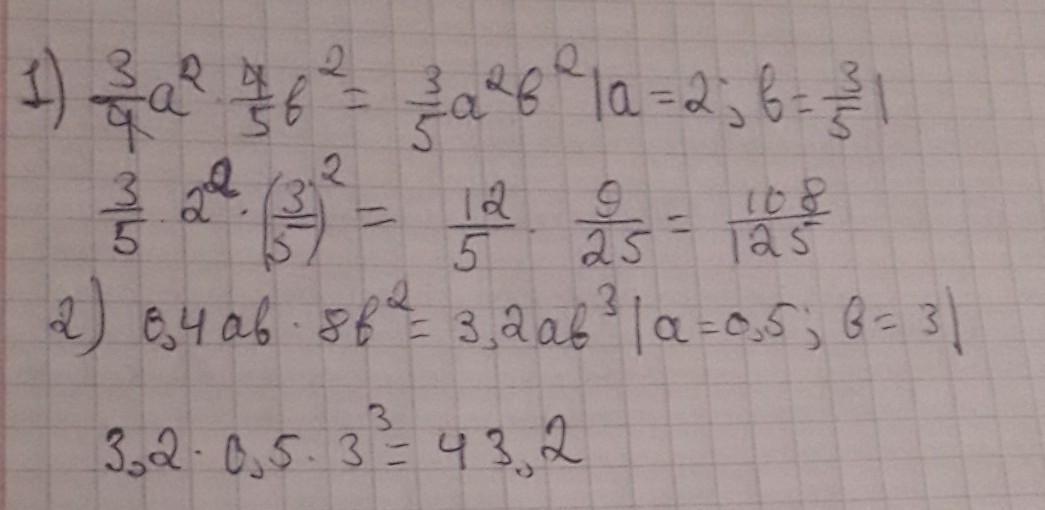 1) 3/4 a² · 4/5 b² = 3/5 a²b² |a = 2; b = 3/5|
3/5 · 2² · (3/5)² = 12/5 · 9/25 = 108/125
2) 0,4ab · 8b² = 3,2ab³ |a = 0,5; b = 3|
3,2 · 0,5 · 3³ = 43,2